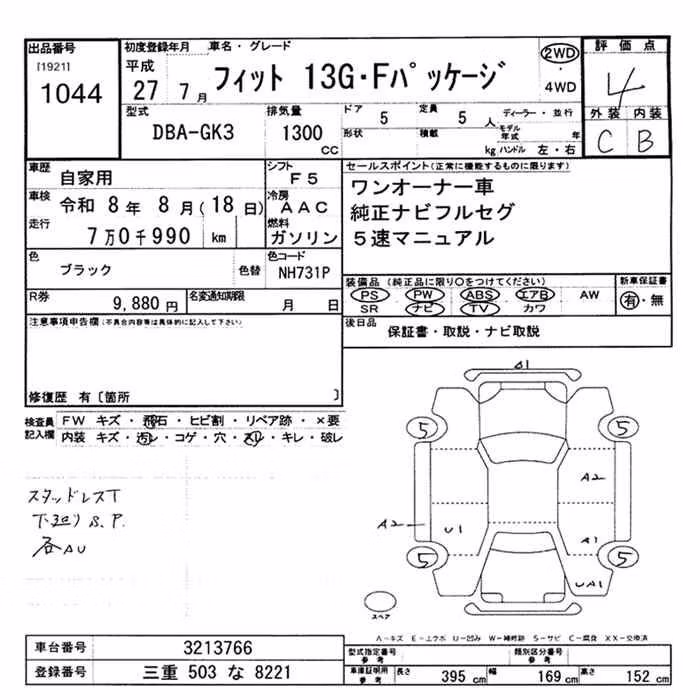 出品番号
[1921]
1044
初度登録年月 車名・グレード
平成
27 7月
フィット 13G・Fパッケージ
2WD
・
4WD
評価点
4
外装 内装
C B
型式
DBA-GK3
排気量
1300
CC
ドア 5
定員 5 人
ディーラー・並行
形状
積載
kg
モデル年式 年
ハンドル 左・右
車歴
自家用
シフト
F5
車検 令和 8年 8月(18日)
冷房
AAC
走行
7万0千990 km
燃料
ガソリン
色
ブラック
色替
色コード
NH731P
R券
9,880 円
名変通知期限
月 日
セールスポイント(正常に機能するものに限ります)
ワンオーナー車
純正ナビフルセグ
5速マニュアル
装備品 (純正品に限り○をつけてください)
PS PW ABS エアB AW
SR ナビ TV カワ
新車保証書
有・無
後日品 保証書・取説・ナビ取説
注意事項申告欄(不具合内容等は具体的に記入して下さい)
修復歴 有〔箇所 〕
検査員記入欄
FW キズ・飛石・ヒビ割・リペア跡・×要
内装 キズ・汚レ・コゲ・穴・スレ・キレ・破レ
スタッドレスT
下廻りS.P.
各AU
A1
5 5
A2
A2 U1
A1
5 5
UA1
スペア
A-キズ E-エクボ U-凹み W-補修跡 S-サビ C-腐食 XX-交換済
車台番号 3213766
登録番号 三重 503 な 8221
型式指定番号
参考
類別区分番号
参考
車庫証明用
参考
長さ 395 cm 幅 169 cm 高さ 152 cm